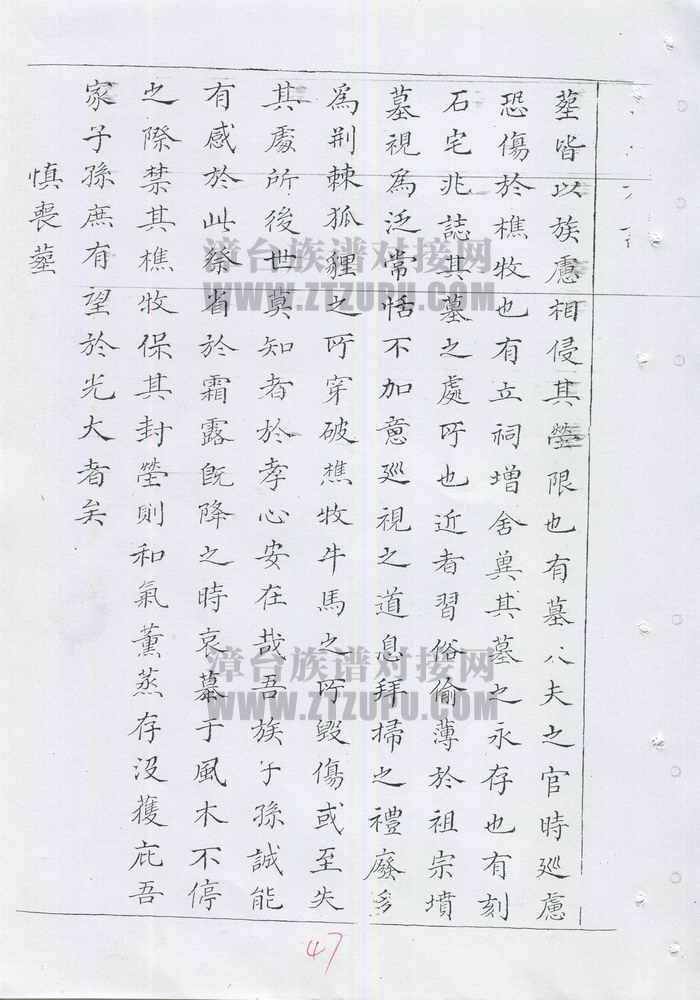 塟皆以族慮相侵其塋限也有墓大夫之官時廵慮
恐傷於樵牧也有立祠增舍冀其墓之永存也有刻
石宅兆誌其墓之處所也近者習俗偷薄於祖宗墳
墓視為泛常恬不加意廵視之道息拜掃之禮廢多
為荆棘狐貍之所穿破樵牧牛馬之所毀傷或至失
其處所後世莫知者於孝心安在哉吾族子孫誠能
有感於此祭省於霜露既降之時哀慕于風木不停
之際禁其樵牧保其封塋則和氣薰蒸存沒獲庇吾
家子孫庶有望於光大者矣
慎喪塟
47
漳台族谱对接网
WWW.ZTZUPU.COM
漳台族谱对接网
WWW.ZTZUPU.COM